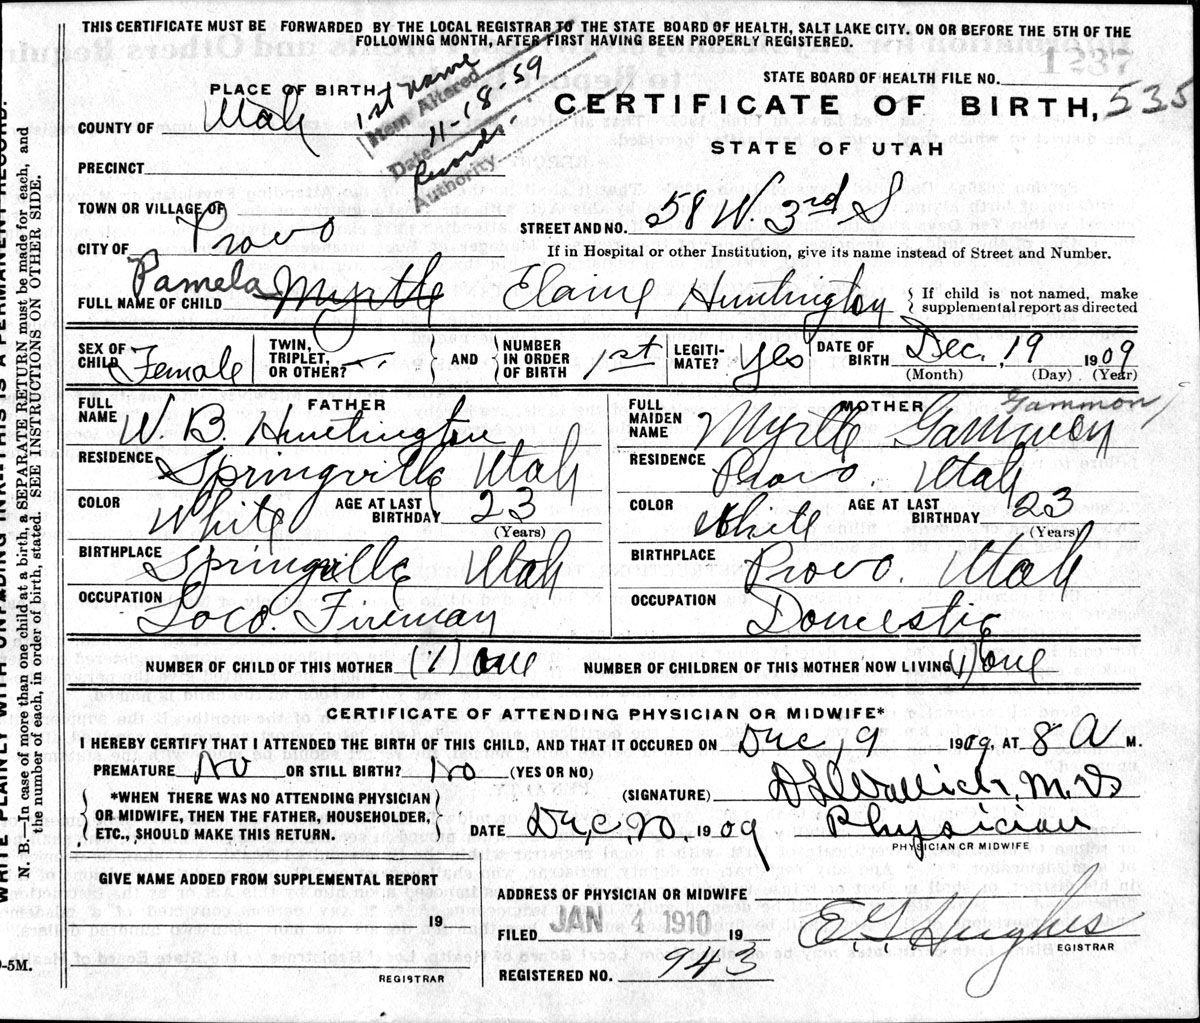 THIS CERTIFICATE MUST BE FORWARDED BY THE LOCAL REGISTRAR TO THE STATE BOARD OF HEALTH, SALT LAKE CITY, ON OR BEFORE THE 5TH OF THE
FOLLOWING MONTH, AFTER FIRST HAVING BEEN PROPERLY REGISTERED.
1237
STATE BOARD OF HEALTH FILE NO.
PLACE OF BIRTH
1st name
Item Altered
Date 11-18-59
Records
Authority
CERTIFICATE OF BIRTH, 535
STATE OF UTAH
COUNTY OF Utah
PRECINCT
TOWN OR VILLAGE OF
CITY OF Provo
STREET AND NO. 58 W. 3rd S
If in Hospital or other Institution, give its name instead of Street and Number.
FULL NAME OF CHILD Pamela Myrtle Elaine Huntington
{ If child is not named, make
supplemental report as directed
SEX OF CHILD Female
TWIN, TRIPLET, OR OTHER? —
AND { NUMBER IN ORDER OF BIRTH 1st
LEGITI-MATE? yes
DATE OF BIRTH Dec. 19 1909
(Month) (Day) (Year)
FATHER
FULL NAME W. B. Huntington
RESIDENCE Springville Utah
COLOR White AGE AT LAST BIRTHDAY 23
(Years)
BIRTHPLACE Springville Utah
OCCUPATION Loco. Fireman
MOTHER Gammon
FULL MAIDEN NAME Myrtle
RESIDENCE Provo. Utah
COLOR White AGE AT LAST BIRTHDAY 23
(Years)
BIRTHPLACE Provo. Utah
OCCUPATION Domestic
NUMBER OF CHILD OF THIS MOTHER (1) one NUMBER OF CHILDREN OF THIS MOTHER NOW LIVING (1) one
CERTIFICATE OF ATTENDING PHYSICIAN OR MIDWIFE*
I HEREBY CERTIFY THAT I ATTENDED THE BIRTH OF THIS CHILD, AND THAT IT OCCURED ON Dec 19 1909, AT 8 A M.
PREMATURE No OR STILL BIRTH? No (YES OR NO)
*WHEN THERE WAS NO ATTENDING PHYSICIAN
OR MIDWIFE, THEN THE FATHER, HOUSEHOLDER,
ETC., SHOULD MAKE THIS RETURN.
(SIGNATURE) M.D
DATE Dec, 20 1909 Physician
PHYSICIAN OR MIDWIFE
GIVE NAME ADDED FROM SUPPLEMENTAL REPORT
19
REGISTRAR
ADDRESS OF PHYSICIAN OR MIDWIFE
FILED JAN 4 1910 19
E G Hughes
EGISTRAR
REGISTERED NO. 943
WRITE PLAINLY WITH UNFADING INK—THIS IS A PERMANENT RECORD.
N. B.—In case of more than one child at a birth, a SEPARATE RETURN must be made for each, and
the number of each, in order of birth, stated. SEE INSTRUCTIONS ON OTHER SIDE.
-5M.